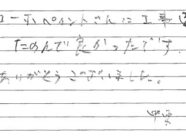 ーホペイントさんに工事を
たのんで良かったです。
ありがとうございました。